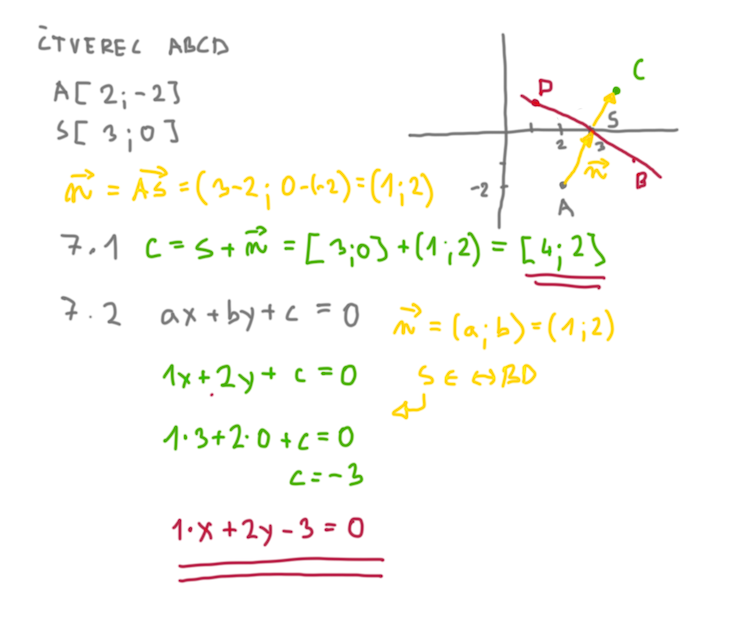 ČTVEREC ABCD
A[2;-2]
S[3;0]
n⃗ = AS⃗ = (3-2; 0-(-2)) = (1;2)
7.1 C = S + n⃗ = [3;0] + (1;2) = [4;2]
7.2 ax + by + c = 0 n⃗ = (a;b) = (1;2)
1x + 2y + c = 0 S ∈ ↔BD
1·3 + 2·0 + c = 0
c = -3
1·x + 2y - 3 = 0
D
C
S
2
3
n⃗
B
-2
A